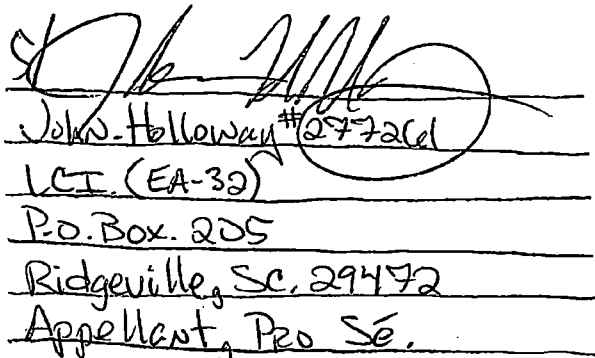 John-Holloway #277261
LCI. (EA-32)
P.O. Box. 205
Ridgeville, SC. 29472
Appellant, Pro Sé.